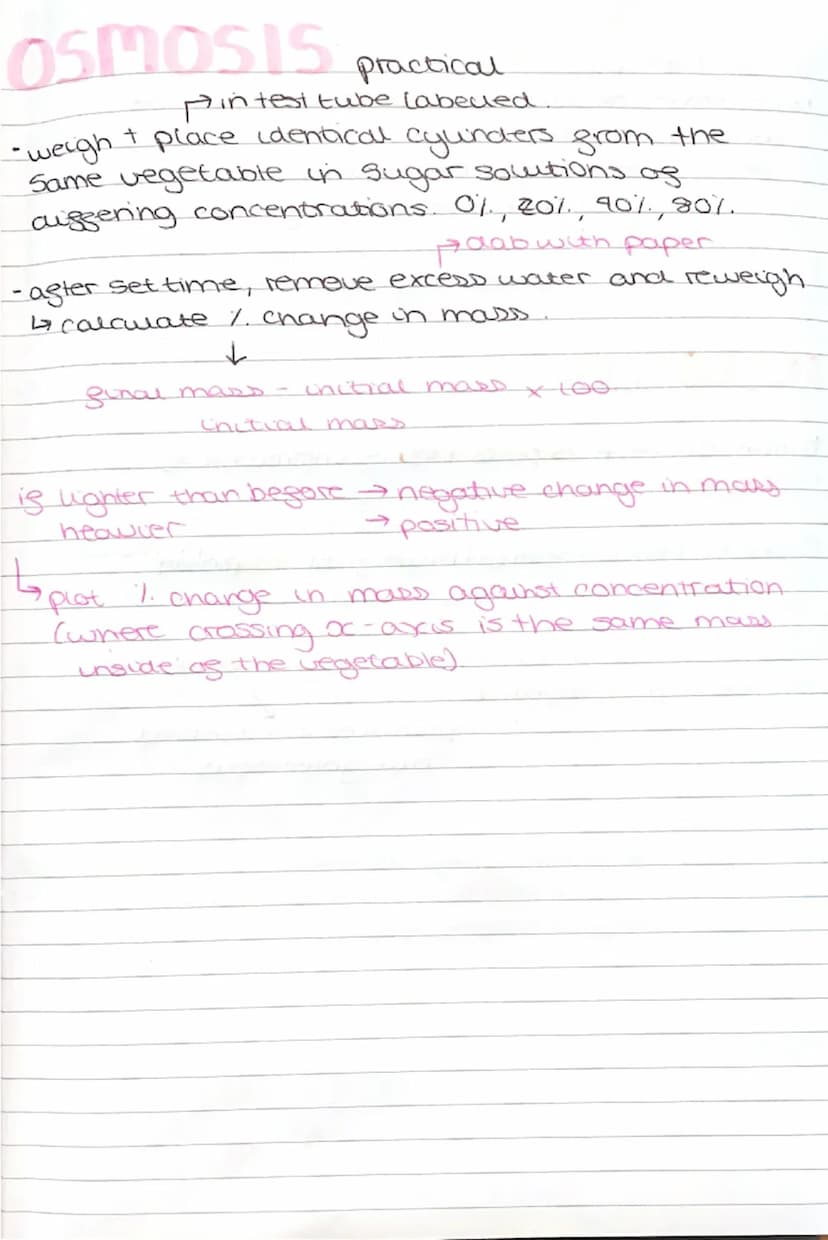 OSMOSIS practical
↱ in test tube labelled.
- weigh + place identical cylinders from the
same vegetable in sugar solutions of
differing concentrations. 0%, 20%, 40%, 80%.
↱ dab with paper
- after set time, remove excess water and reweigh
↳ calculate % change in mass.
↓
final mass - initial mass x 100
initial mass
if lighter than before → negative change in mass
heavier → positive
↳ plot % change in mass against concentration
(where crossing x-axis is the same mass
inside of the vegetable)